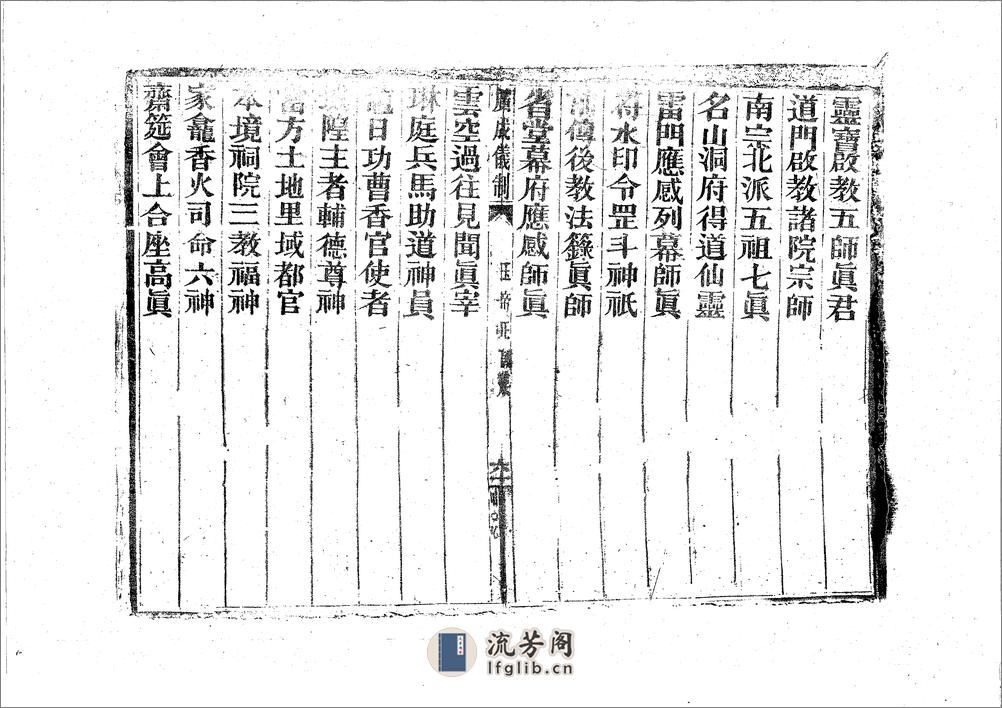 靈寶啟教五師眞君
道門啟教諸院宗師
南宗北派五祖七眞
名山洞府得道仙靈
雷門應感列幕師眞
將水印令罡斗神祇
傳後教法籙眞師
省堂幕府應感師眞
廣成儀制
六
雲空過往見聞眞宰
琳庭兵馬助道神員
日功曹香官使者
隍主者輔德尊神
當方土地里域都官
本境祠院三教福神
家龕香火司命六神
齋筵會上合座高眞
流芳阁
lfglib.cn